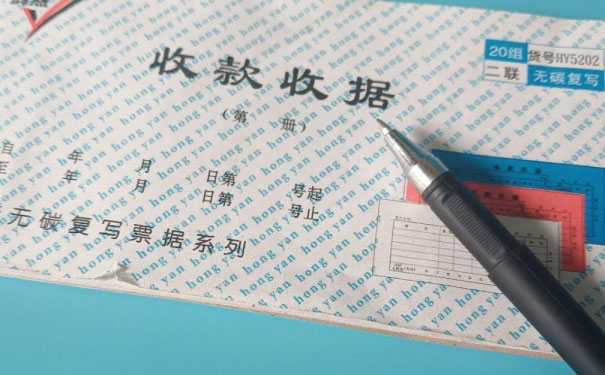 收款收据
(第 册)
20组 货号HY5202
二联 无碳复写
自 年 月 日第 号起
至 年 月 日第 号止
无碳复写票据系列
hong yan hong yan hong yan hong yan